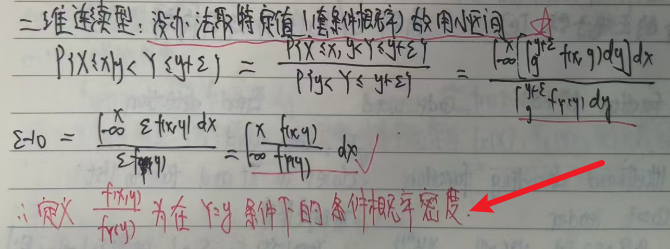 二维连续型：没办法取特定值（套条件概率）故用小区间
P{X≤x|y<Y≤y+ε} = P{X≤x, y<Y≤y+ε} / P{y<Y≤y+ε} = ∫_{-∞}^{x} [∫_{y}^{y+ε} f(x,y)dy]dx / ∫_{y}^{y+ε} f_Y(y)dy
ε→0 = ∫_{-∞}^{x} εf(x,y)dx / εf_Y(y) = ∫_{-∞}^{x} f(x,y)/f_Y(y) dx
∴定义 f(x,y)/f_Y(y) 为在 Y=y 条件下的条件概率密度.